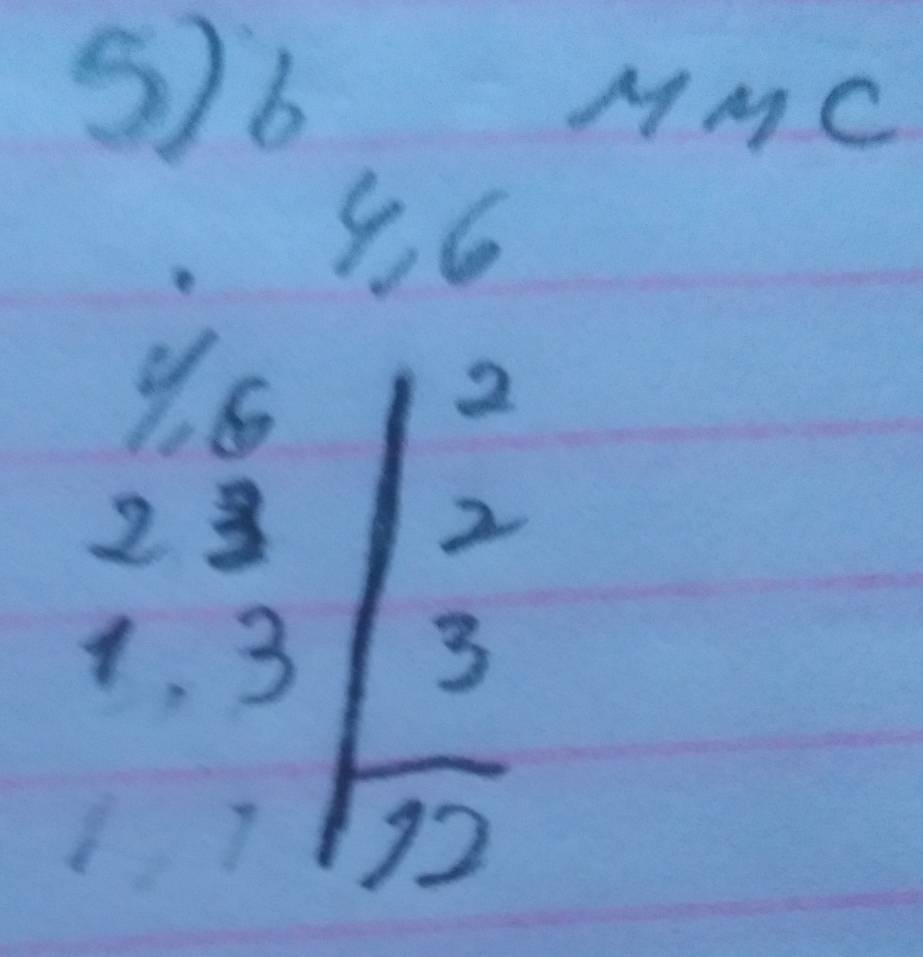 5) b MMC
4,6
4,6 | 2
2 3 | 2
1, 3 | 3
1, 1 | 12